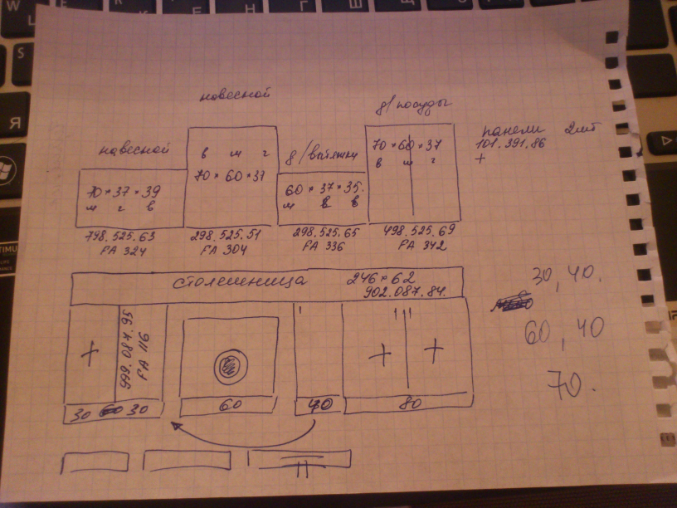 навесной
д/посуды
навесной
д/вытяжки
панели 2шт
101.391.86
+
70×37×39
ш г в
в ш г
70×60×37
60×37×35.
ш в в
70×60×37
в ш г
798.525.63
FA 324
298.525.51
FA 304
298.525.65
FA 336
498.525.69
FA 342
столешница 246×62
902.087.84.
30, 40.
60, 40
70.
+
999.087.95
FA 116
+ +
30 30
60
40
80